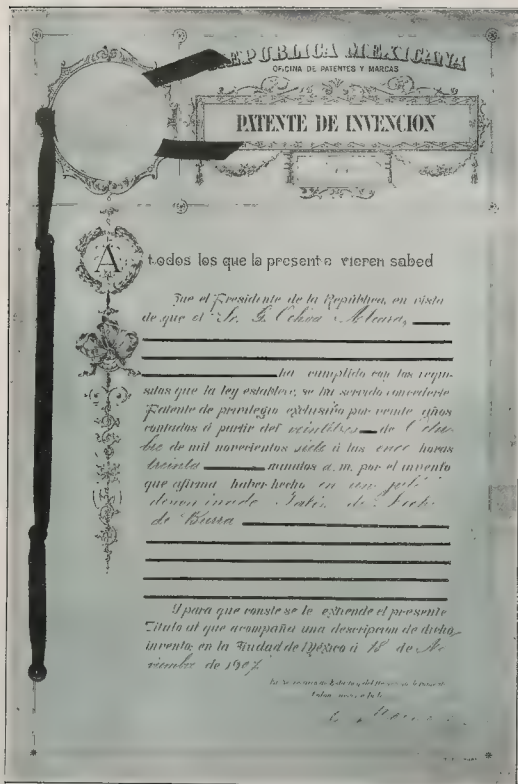 REPUBLICA MEXICANA
OFICINA DE PATENTES Y MARCAS
PATENTE DE INVENCION
A todos los que la presente vieren sabed
Que el Presidente de la República, en vista
de que el Sr. G. Ochoa
ha cumplido con los requi-
sitos que la ley establece, se ha servido concederle
Patente de privilegio exclusivo por veinte años
contados á partir del veintitres de Octu-
bre de mil novecientos siete á las once horas
treinta minutos a.m. por el invento
que afirma haber hecho en un
denominado de
de Burra
Y para que conste se le extiende el presente
Título al que acompaña una descripcion de dicho
invento, en la Ciudad de México á 18 de No-
viembre de 1907.